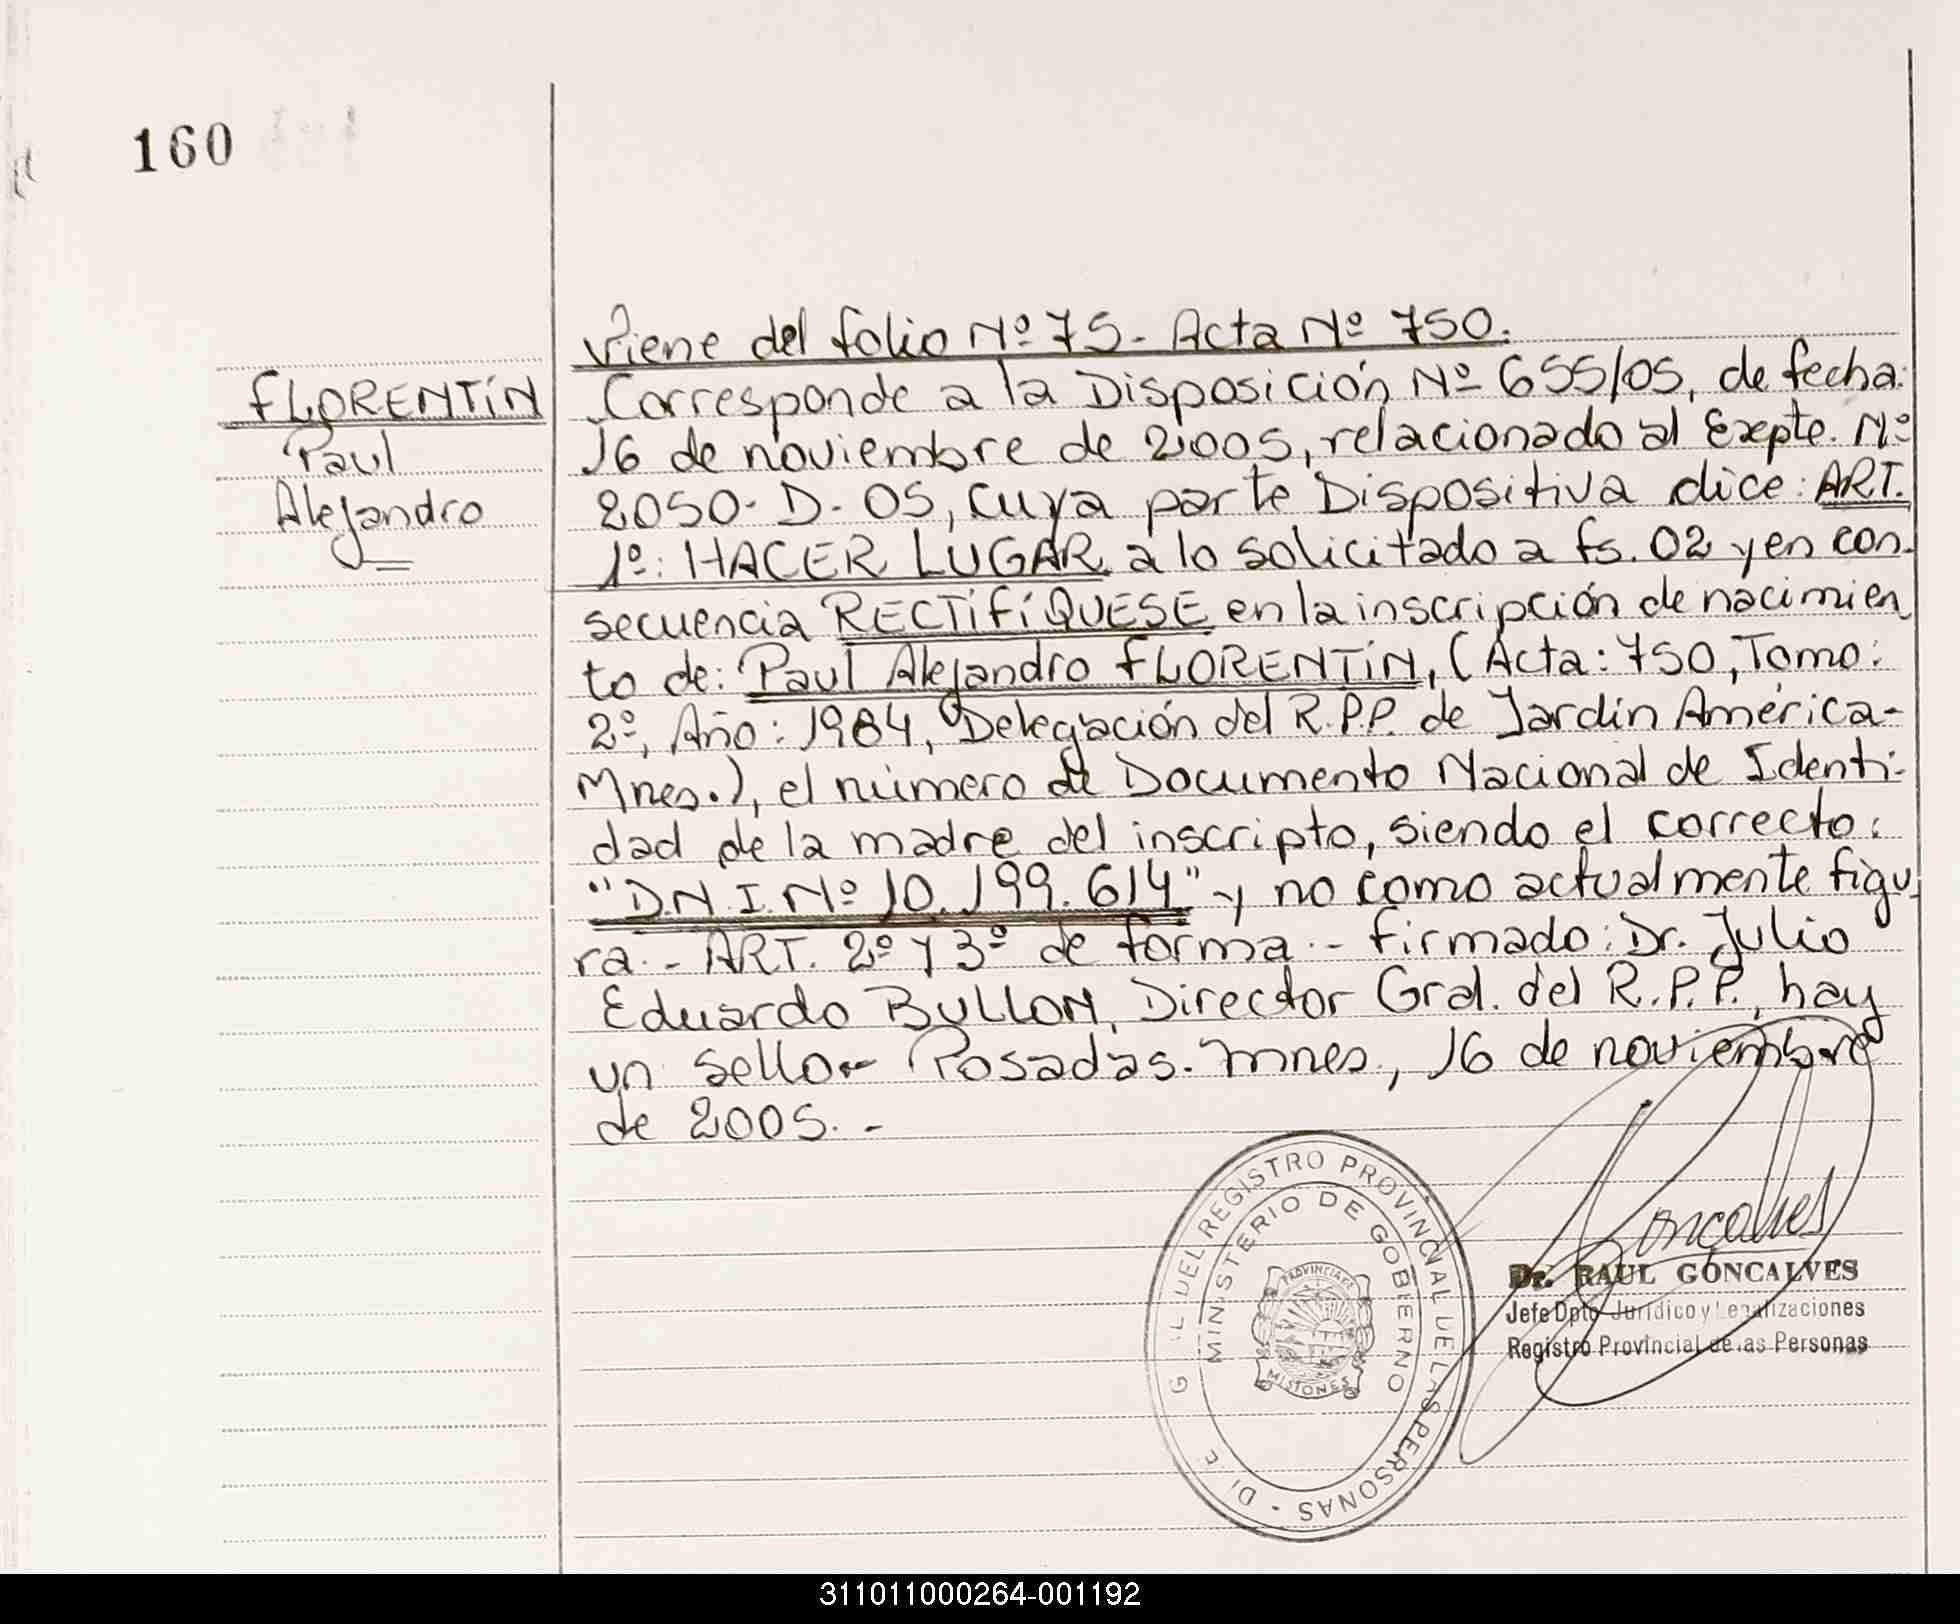 160
FLORENTÍN
Paul
Alejandro
Viene del folio Nº 75. Acta Nº 750.
Corresponde a la Disposición Nº 655/05, de fecha:
16 de noviembre de 2005, relacionado al Expte. Nº
2050. D. 05, cuya parte Dispositiva dice: ART.
1º: HACER LUGAR a lo solicitado a fs. 02 y en con-
secuencia RECTIFÍQUESE en la inscripción de nacimien
to de: Paul Alejandro FLORENTÍN, (Acta: 750, Tomo:
2º, Año: 1984, Delegación del R.P.P. de Jardín América-
Mnes.), el número de Documento Nacional de Identi-
dad de la madre del inscripto, siendo el correcto:
"D.N.I. Nº 10.199.614" y no como actualmente figu-
ra.- ART. 2º y 3º de forma.- Firmado: Dr. Julio
Eduardo BULLON, Director Gral. del R.P.P., hay
un sello.- Posadas. Mnes., 16 de noviembre
de 2005.-
G L DEL REGISTRO PROVINCIAL DE LAS PERSONAS -
MINISTERIO DE GOBIERNO
PROVINCIA DE
MISIONES
Goncalves
Dr. RAUL GONCALVES
Jefe Dpto Jurídico y Legalizaciones
Registro Provincial de las Personas
311011000264-001192